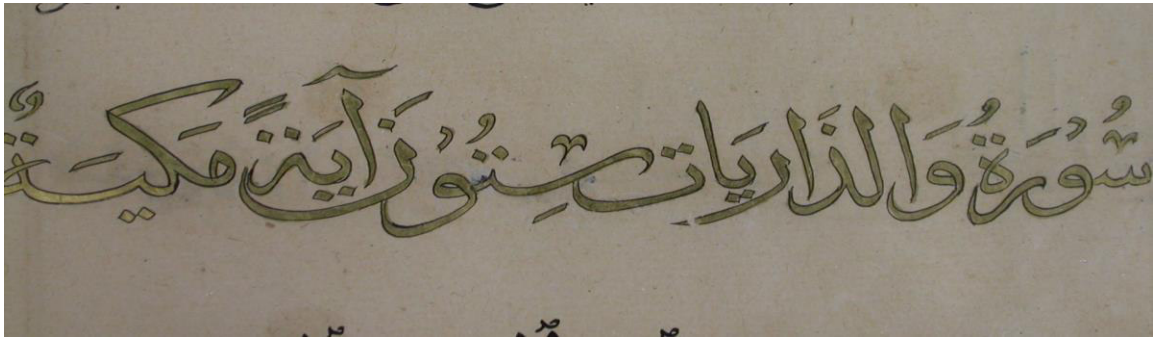 سُوْرَةُ وَالذَّارِيَاتِ سِتُّوْنَ آيَةً مَكِّيَّةٌ